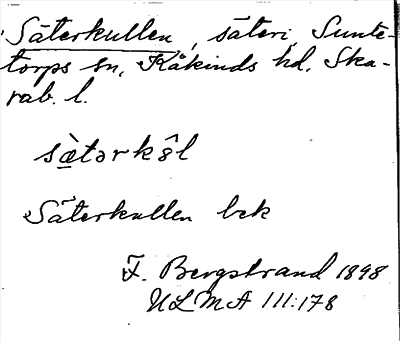 Säterkullen, säteri, Sunte-
torps sn, Kåkinds hd, Ska-
rab. l.
sæ̀tərkȏ̤l
Säterkullen bek
F. Bergstrand 1898
ULMA 111:178